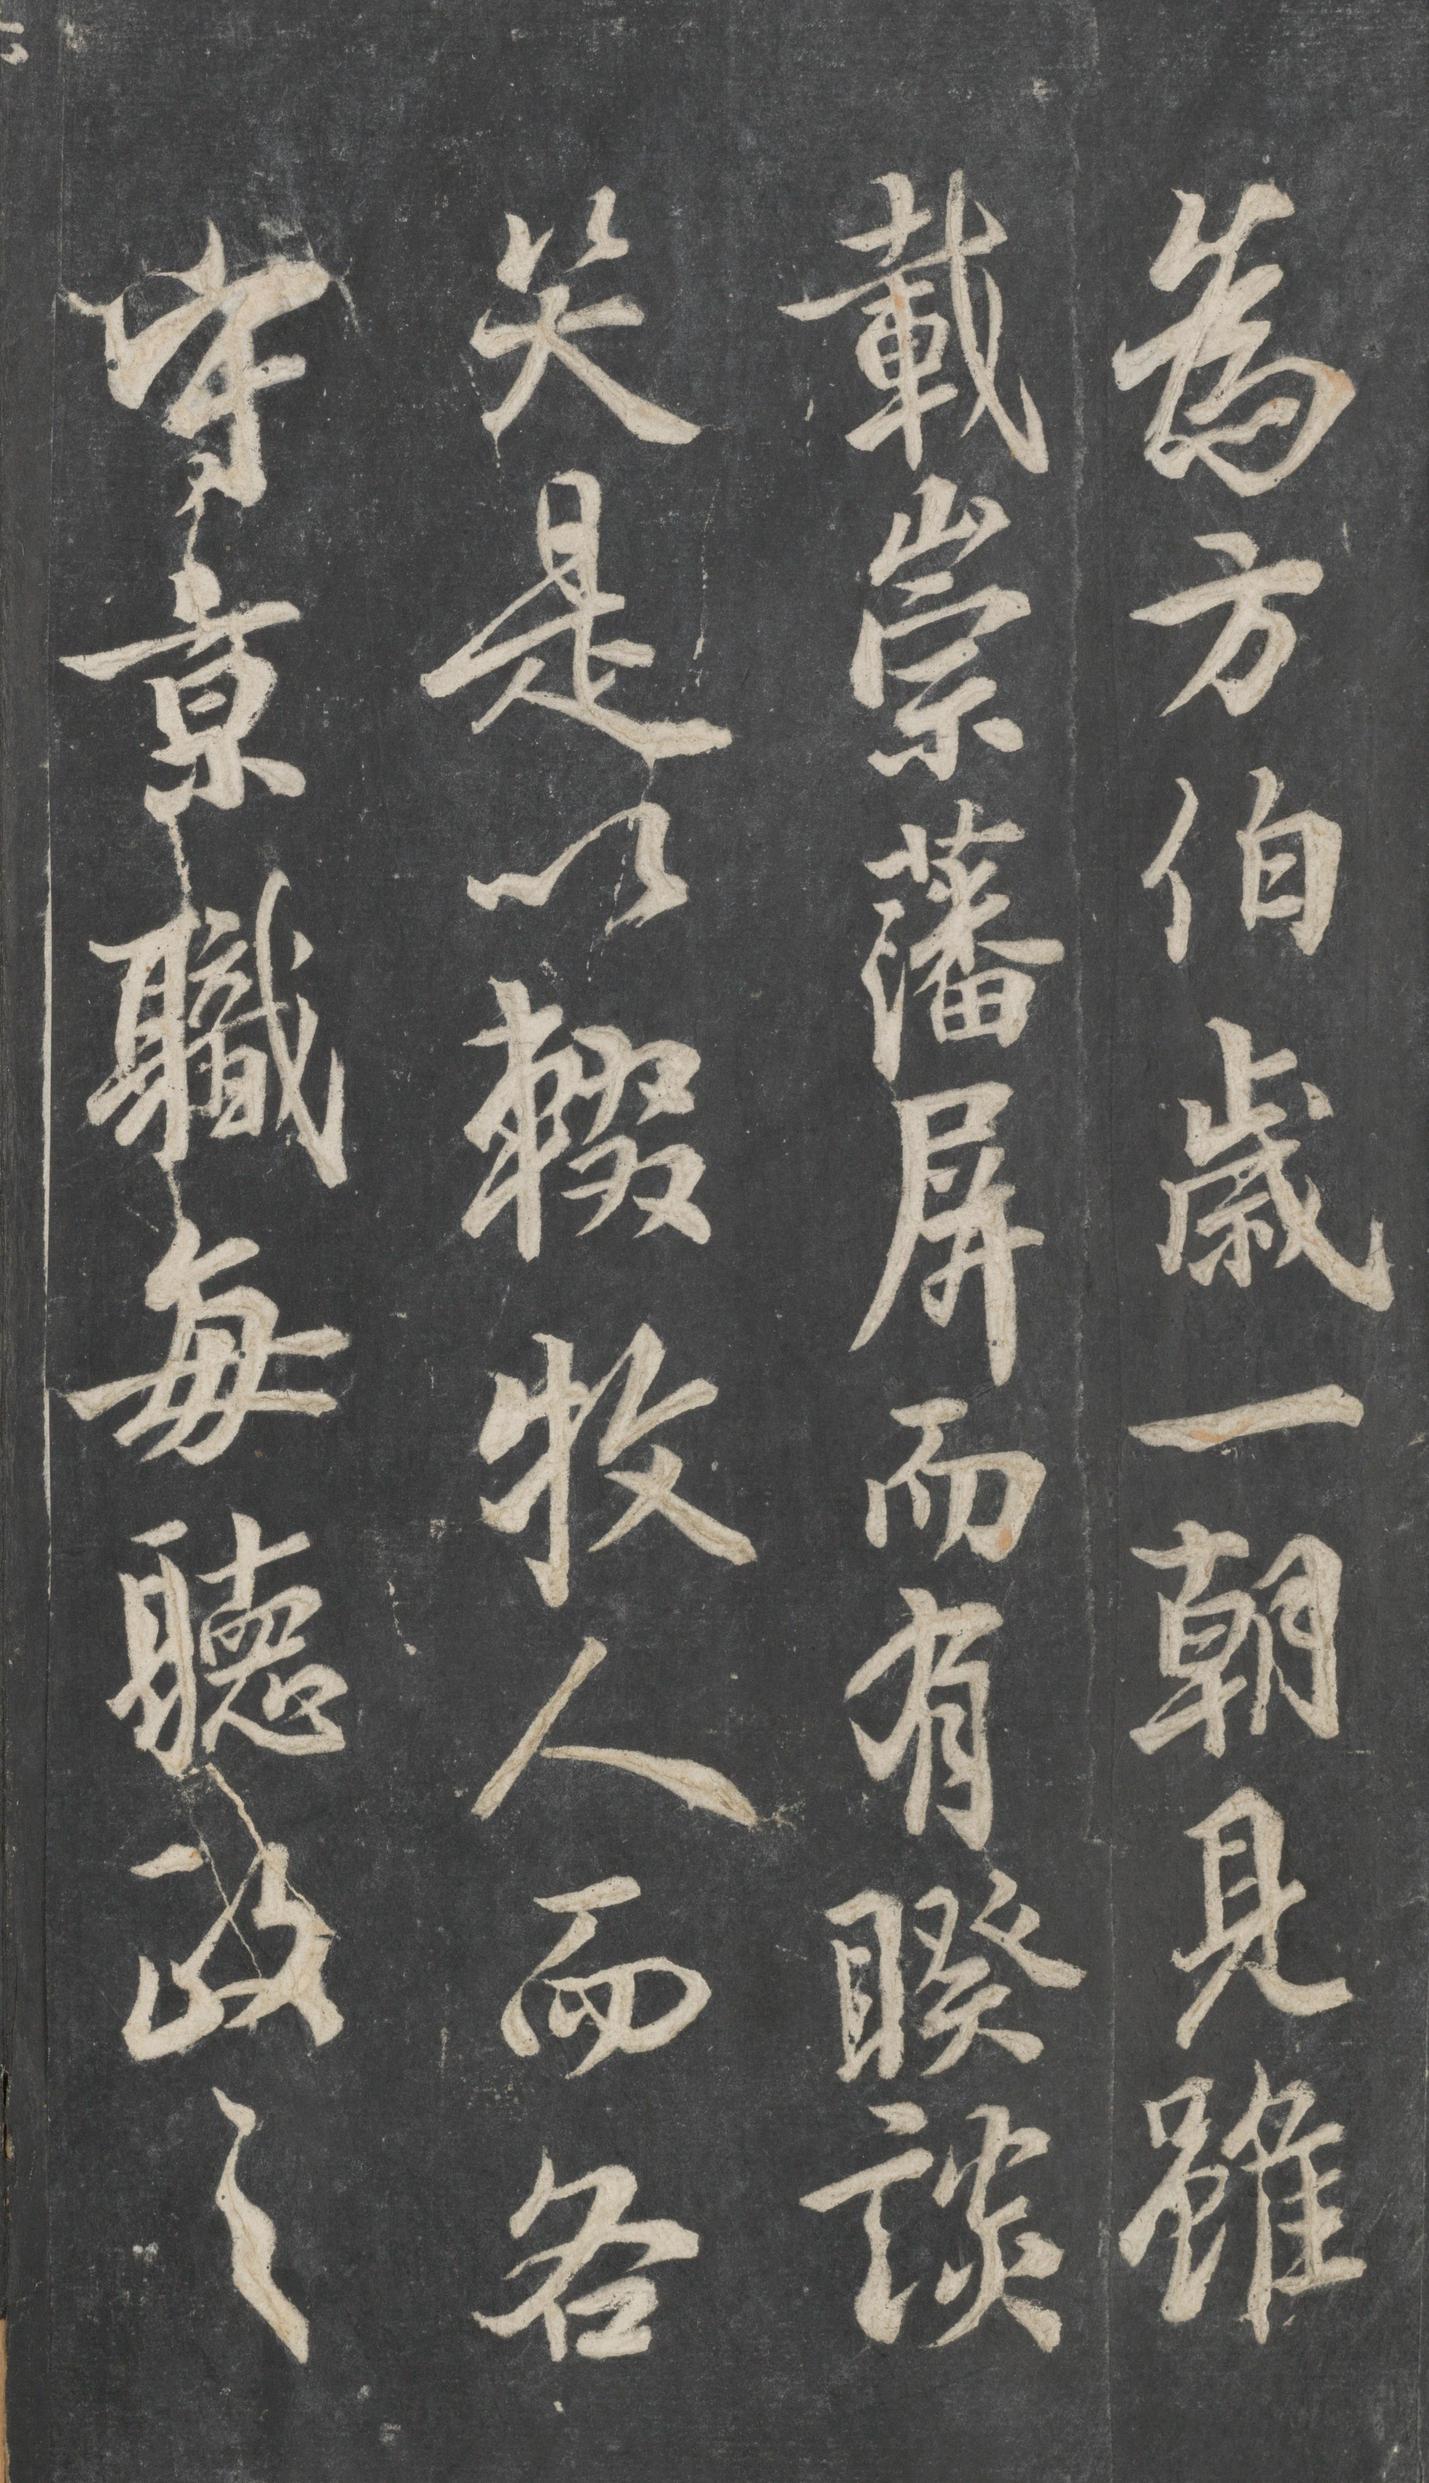 為方伯歲一朝見雖
載崇藩屏而有睽談
笑是以輟牧人而各
守京職每聽政之